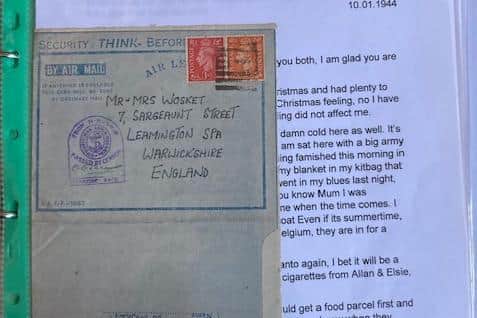 10.01.1944
SECURITY THINK- BEFOR
BY AIR MAIL
AIR LE
IF ANYTHING IS ENCLOSED
THIS CARD WILL BE SENT
BY ORDINARY MAIL
MR-MRS WOSKET
7, SARGEAUNT STREET
LEAMINGTON SPA
WARWICKSHIRE
ENGLAND
you both, I am glad you are
ristmas and had plenty to
Christmas feeling, no I have
ing did not affect me.
damn cold here as well. It's
am sat here with a big army
ing famished this morning in
my blanket in my kitbag that
went in my blues last night,
ou know Mum I was
ne when the time comes. I
oat Even if its summertime,
elgium, they are in for a
anto again, I bet it will be a
cigarettes from Allan & Elsie,
uld get a food parcel first and